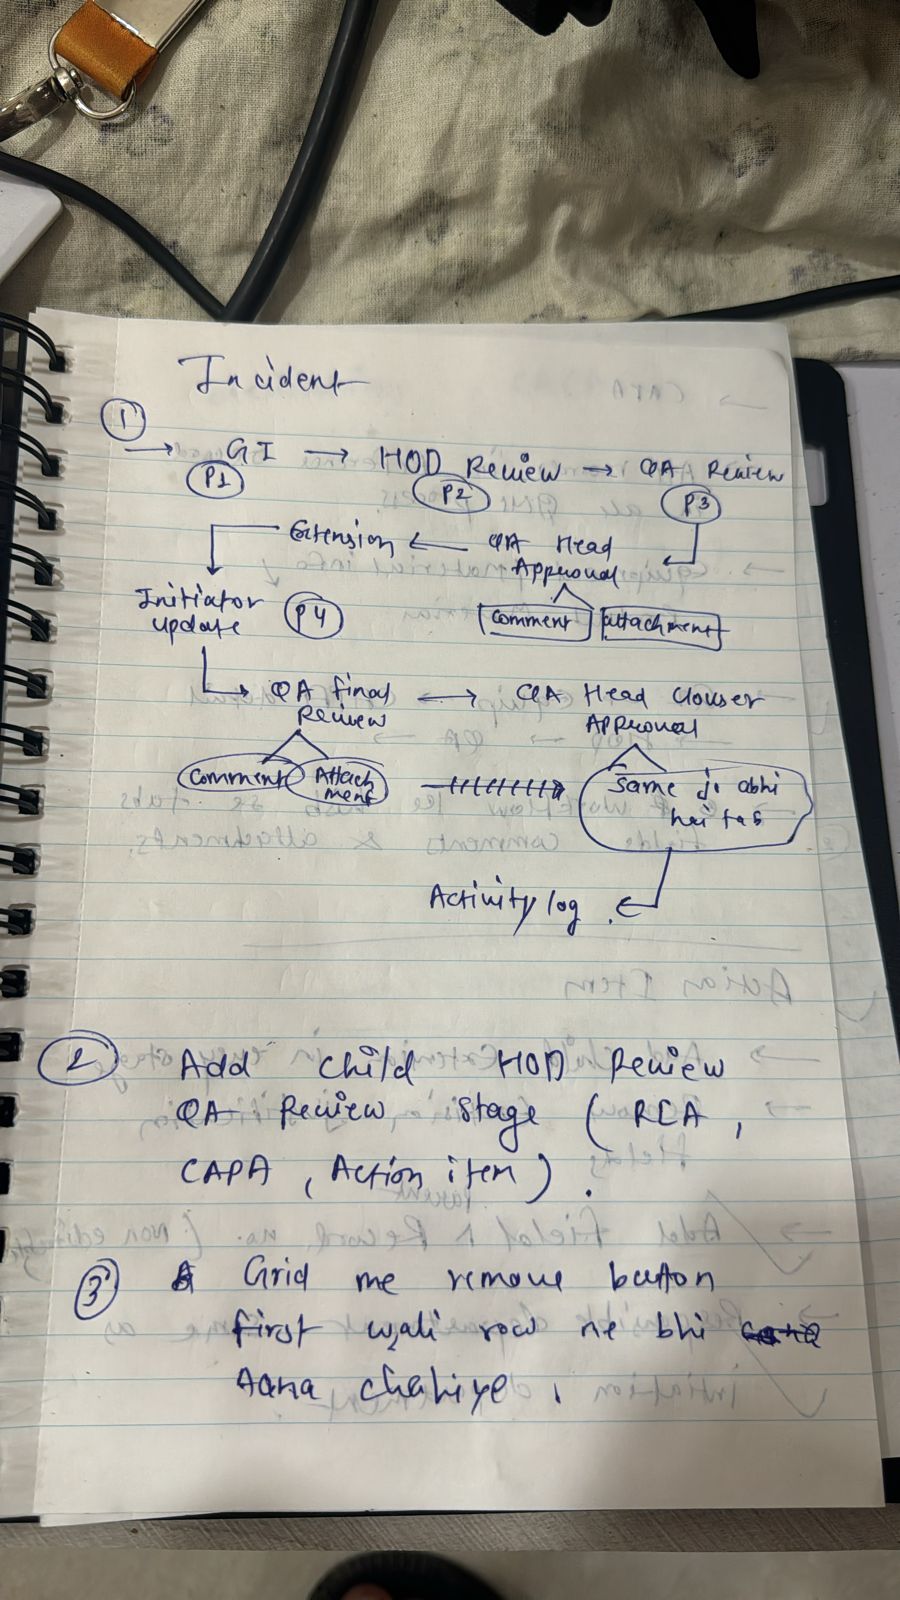 Incident
① → GI → HOD Review → QA Review
P1 P2 P3
Extension ← QA Head
Approval
Initiator
update P4
Comment attachment
→ QA final ↔ QA Head Clouser
Review Approval
Comment Attach
ment
Same jo abhi
hai tab
Activity log
② Add child HOD Review
QA Review stage ( RCA ,
CAPA , Action item ) .
③ Grid me remove button
first wali row me bhi
Aana chahiye .